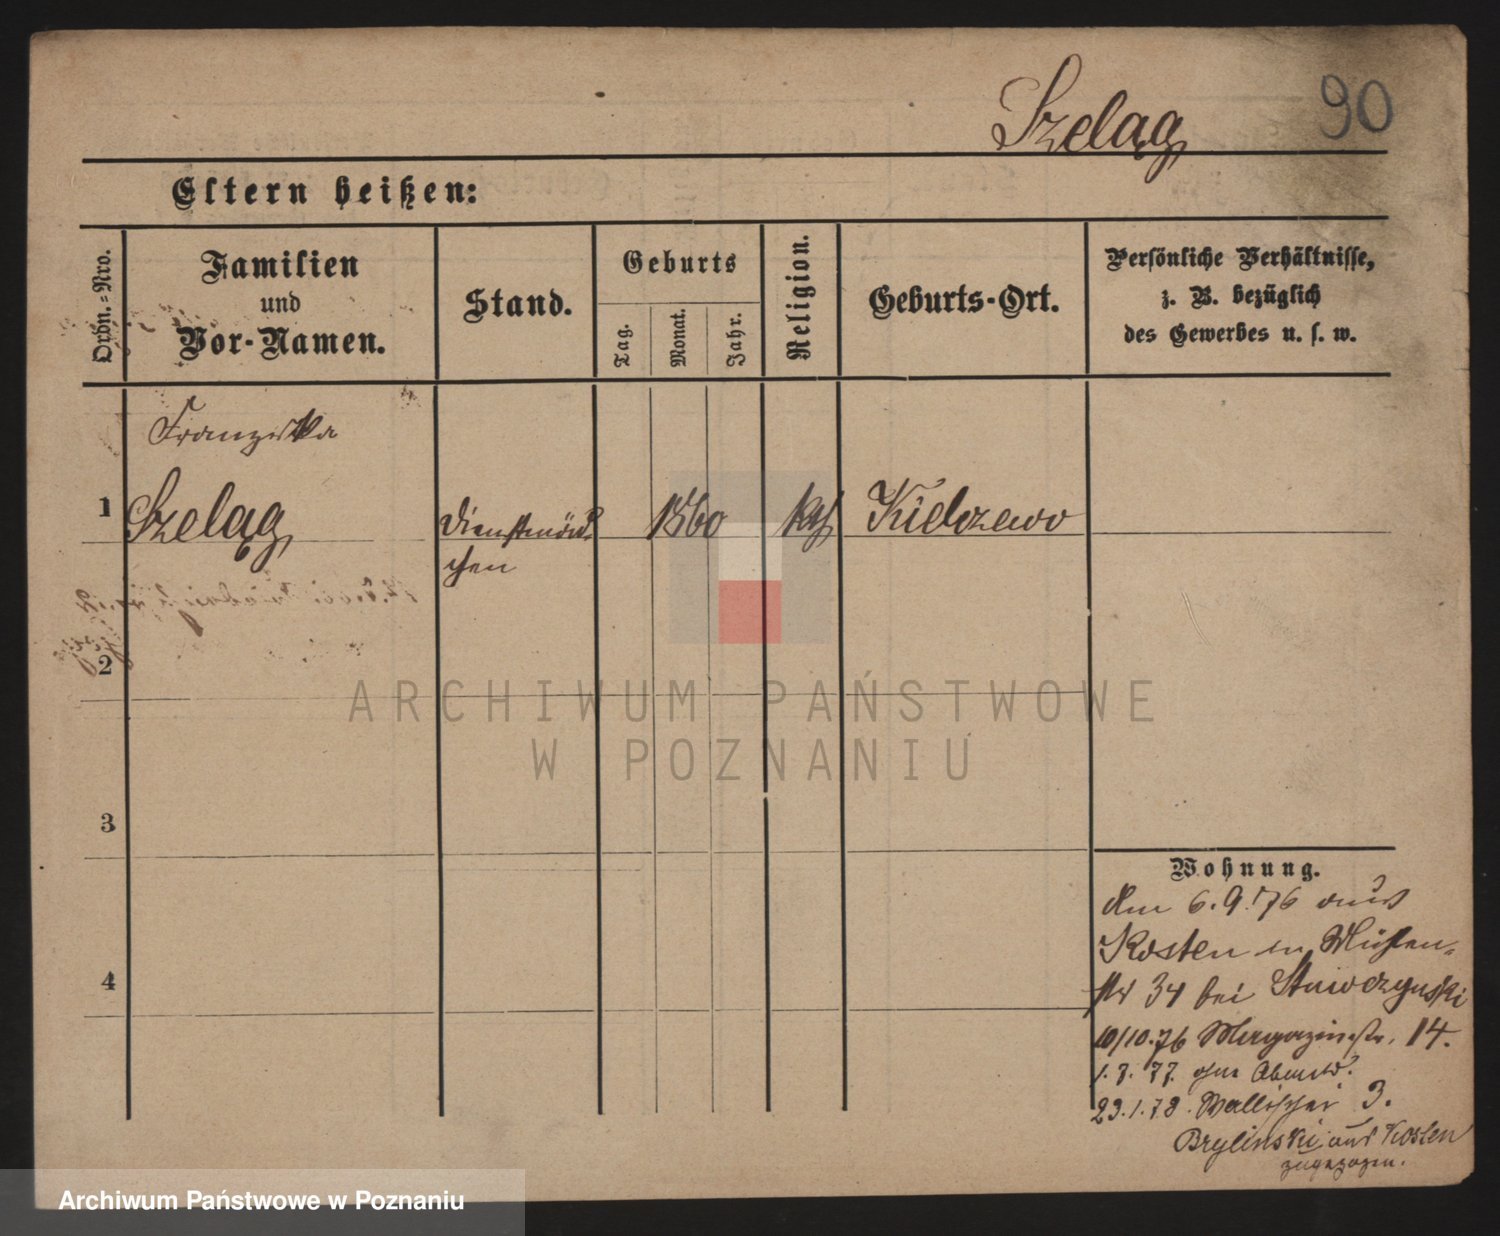 Szeląg 90
Eltern heißen:
Ordn.=Nro.
Familien
und
Vor-Namen.
Stand.
Geburts
Tag.
Monat.
Jahr.
Religion.
Geburts-Ort.
Persönliche Verhältnisse,
z. B. bezüglich
des Gewerbes u. s. w.
Franziska
1 Szeląg Dienstmäd= 1860 kath Kielczewo
chen
2
3
4
Wohnung.
den 6.9.76 aus
Kosten in Mühlen=
str 34 bei
10/10.76 Magazinstr. 14.
1.7.77. ohne
23.1.78. Wallischei 3.
Brylinski aus Kosten
zugezogen.
ARCHIWUM PAŃSTWOWE
W POZNANIU
Archiwum Państwowe w Poznaniu